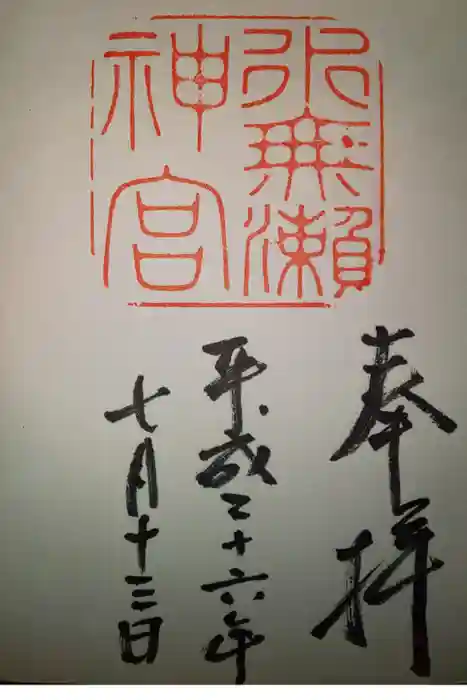 水無瀬
神宮
奉拝
平成二十六年
七月十三日